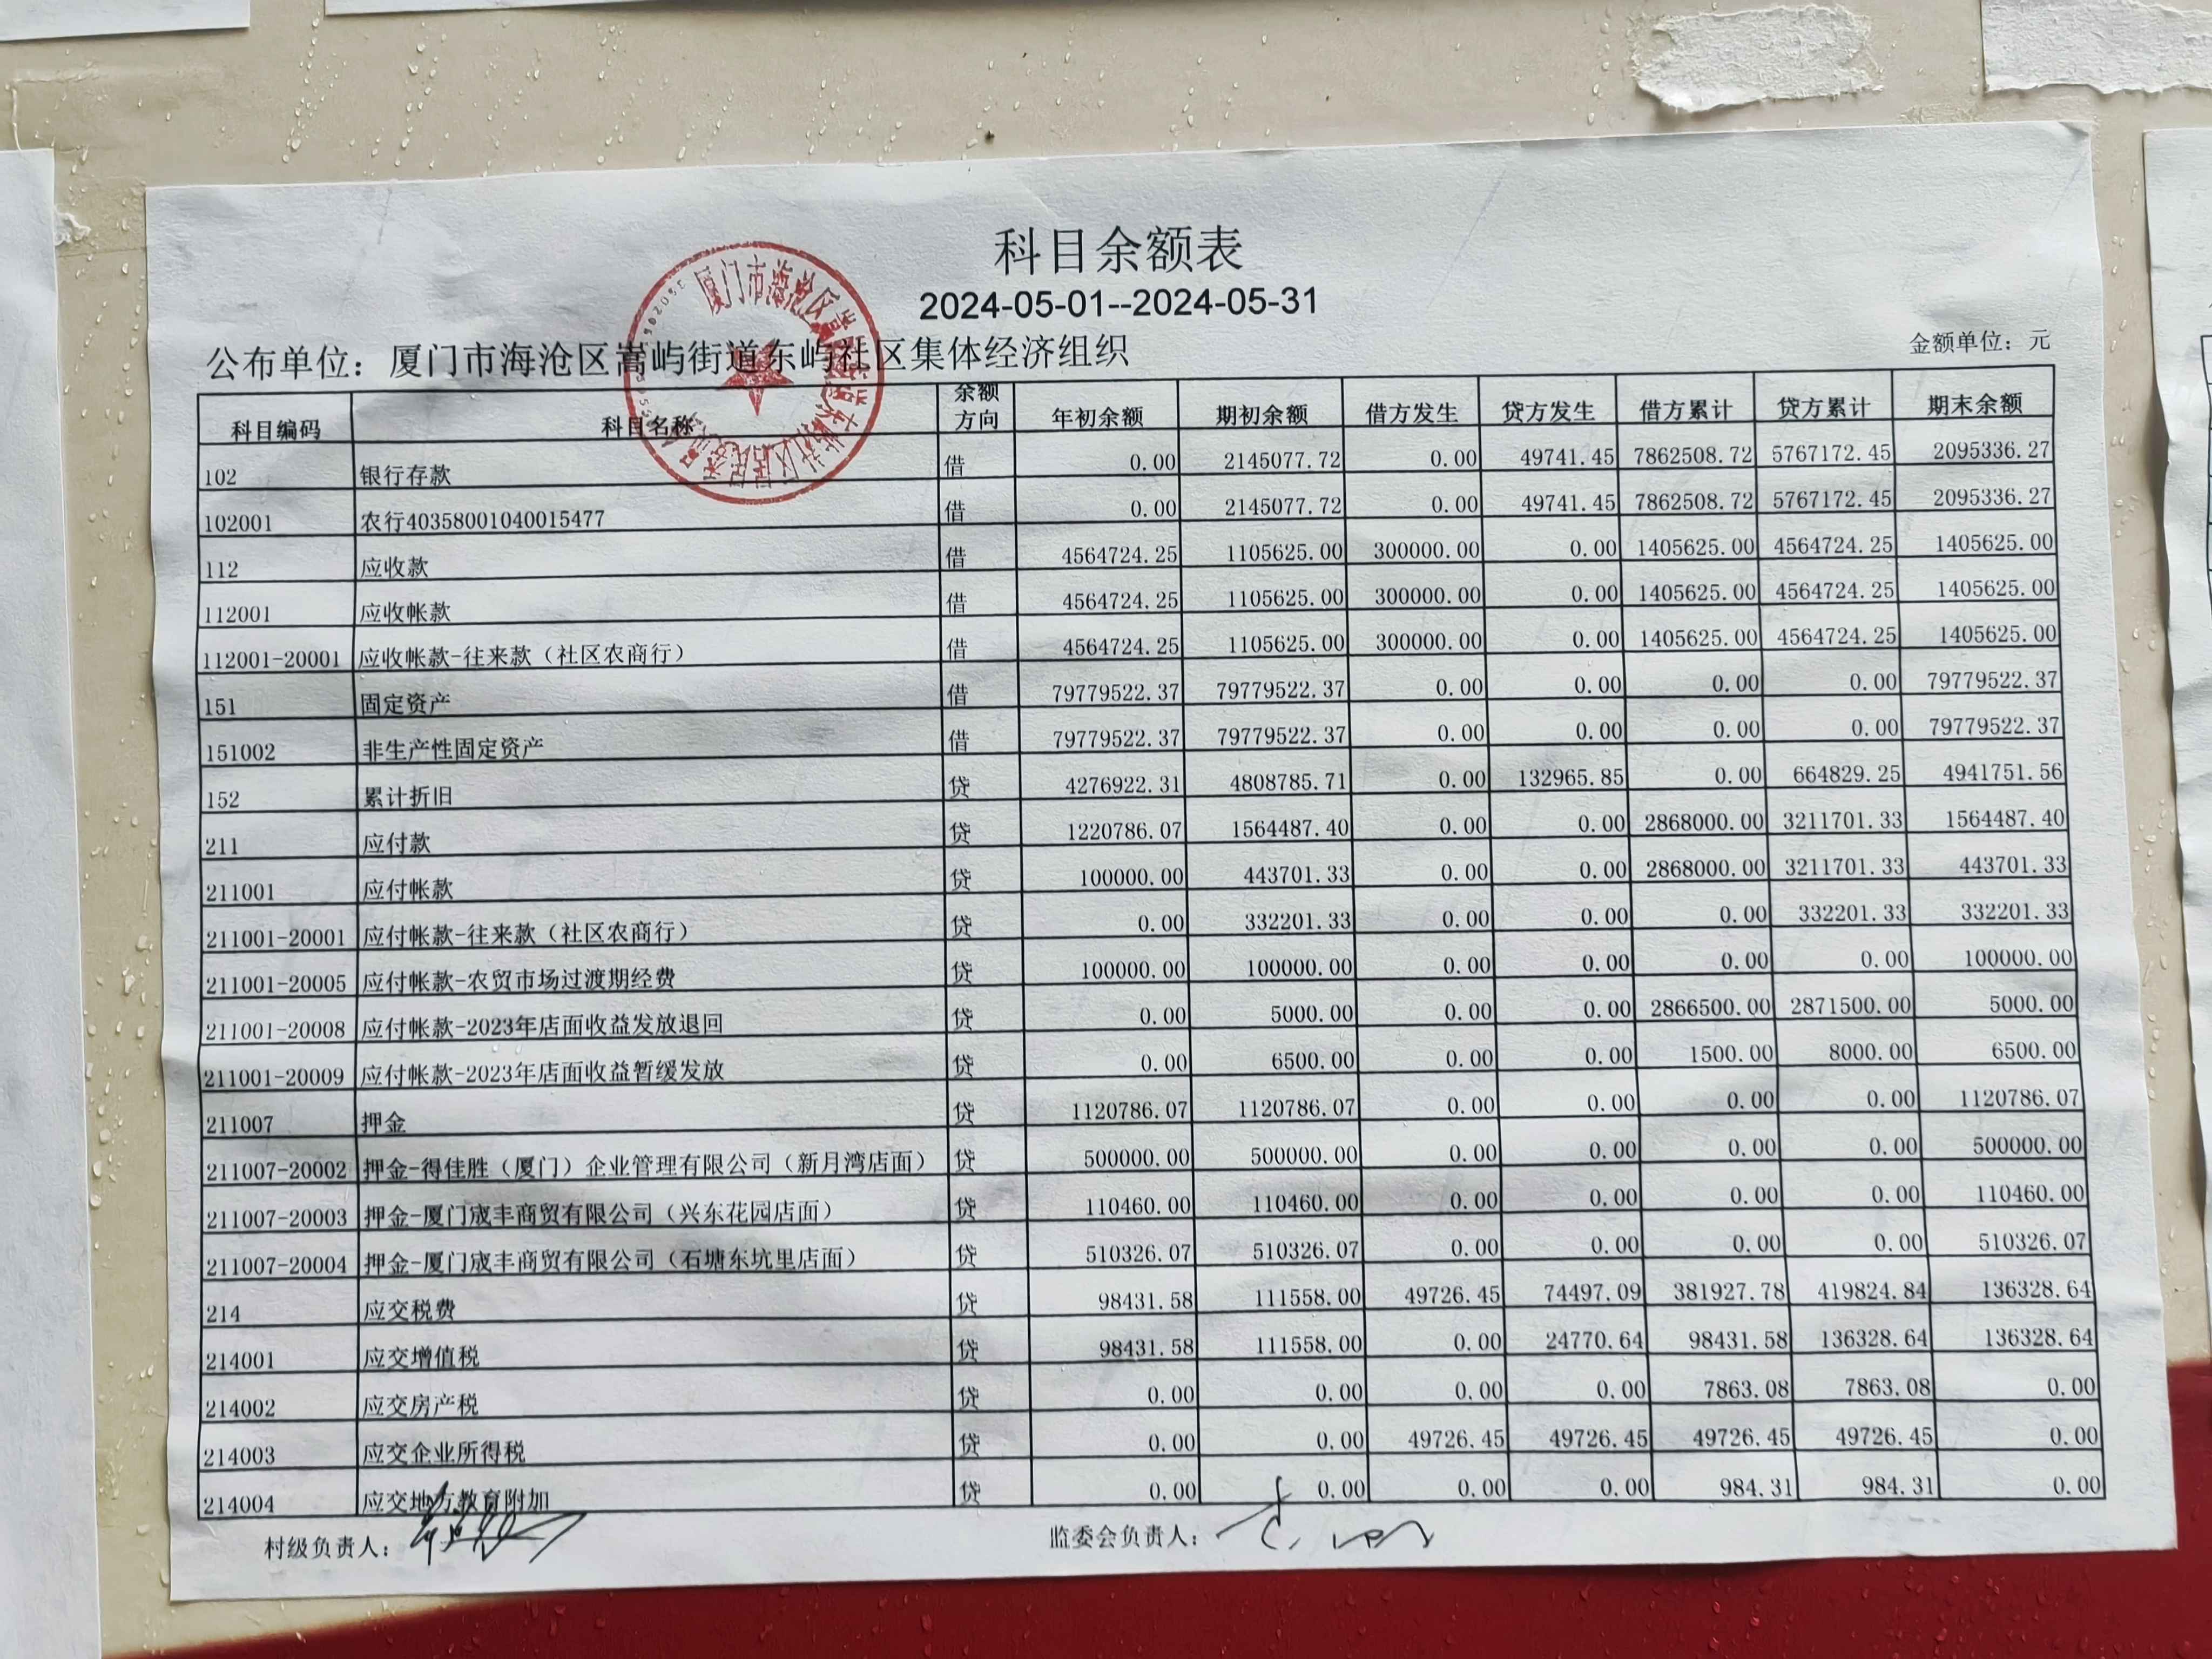 科目余额表
2024-05-01--2024-05-31
公布单位：厦门市海沧区嵩屿街道东屿社区集体经济组织 金额单位：元
科目编码 科目名称 余额方向 年初余额 期初余额 借方发生 贷方发生 借方累计 贷方累计 期末余额
102 银行存款 借 0.00 2145077.72 0.00 49741.45 7862508.72 5767172.45 2095336.27
102001 农行40358001040015477 借 0.00 2145077.72 0.00 49741.45 7862508.72 5767172.45 2095336.27
112 应收款 借 4564724.25 1105625.00 300000.00 0.00 1405625.00 4564724.25 1405625.00
112001 应收帐款 借 4564724.25 1105625.00 300000.00 0.00 1405625.00 4564724.25 1405625.00
112001-20001 应收帐款-往来款（社区农商行） 借 4564724.25 1105625.00 300000.00 0.00 1405625.00 4564724.25 1405625.00
151 固定资产 借 79779522.37 79779522.37 0.00 0.00 0.00 0.00 79779522.37
151002 非生产性固定资产 借 79779522.37 79779522.37 0.00 0.00 0.00 0.00 79779522.37
152 累计折旧 贷 4276922.31 4808785.71 0.00 132965.85 0.00 664829.25 4941751.56
211 应付款 贷 1220786.07 1564487.40 0.00 0.00 2868000.00 3211701.33 1564487.40
211001 应付帐款 贷 100000.00 443701.33 0.00 0.00 2868000.00 3211701.33 443701.33
211001-20001 应付帐款-往来款（社区农商行） 贷 0.00 332201.33 0.00 0.00 0.00 332201.33 332201.33
211001-20005 应付帐款-农贸市场过渡期经费 贷 100000.00 100000.00 0.00 0.00 0.00 0.00 100000.00
211001-20008 应付帐款-2023年店面收益发放退回 贷 0.00 5000.00 0.00 0.00 2866500.00 2871500.00 5000.00
211001-20009 应付帐款-2023年店面收益暂缓发放 贷 0.00 6500.00 0.00 0.00 1500.00 8000.00 6500.00
211007 押金 贷 1120786.07 1120786.07 0.00 0.00 0.00 0.00 1120786.07
211007-20002 押金-得佳胜（厦门）企业管理有限公司（新月湾店面） 贷 500000.00 500000.00 0.00 0.00 0.00 0.00 500000.00
211007-20003 押金-厦门宬丰商贸有限公司（兴东花园店面） 贷 110460.00 110460.00 0.00 0.00 0.00 0.00 110460.00
211007-20004 押金-厦门宬丰商贸有限公司（石塘东坑里店面） 贷 510326.07 510326.07 0.00 0.00 0.00 0.00 510326.07
214 应交税费 贷 98431.58 111558.00 49726.45 74497.09 381927.78 419824.84 136328.64
214001 应交增值税 贷 98431.58 111558.00 0.00 24770.64 98431.58 136328.64 136328.64
214002 应交房产税 贷 0.00 0.00 0.00 0.00 7863.08 7863.08 0.00
214003 应交企业所得税 贷 0.00 0.00 49726.45 49726.45 49726.45 49726.45 0.00
214004 应交地方教育附加 贷 0.00 0.00 0.00 0.00 984.31 984.31 0.00
村级负责人： 监委会负责人：